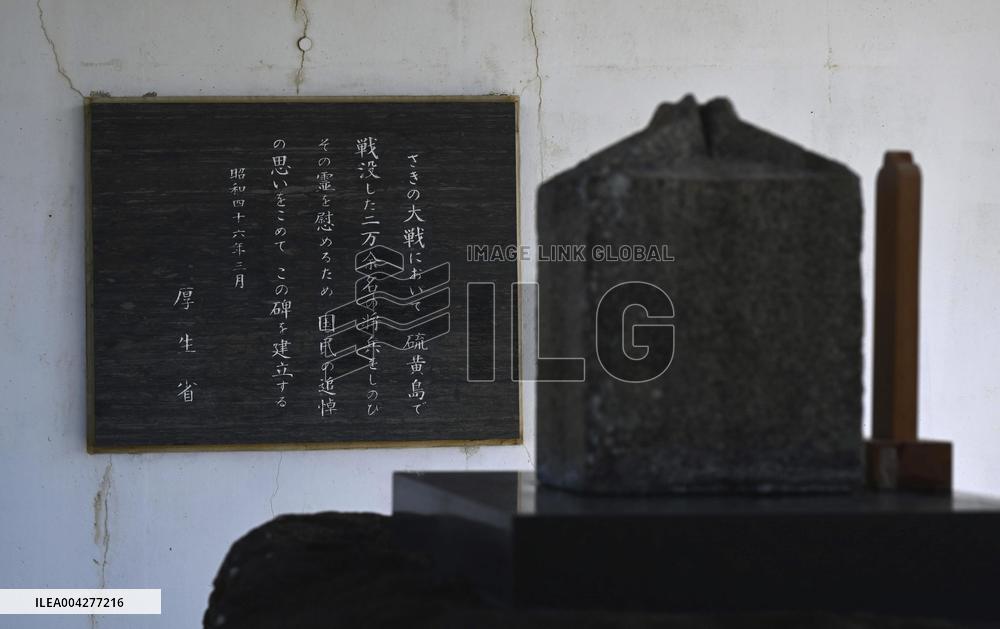 さきの大戦において 硫黄島で
戦没した二万余名の将兵をしのび
その霊を慰めるため 国民の追悼
の思いをこめて この碑を建立する
昭和四十六年三月
厚生省
IMAGE LINK GLOBAL
ILG
ILEA004277216